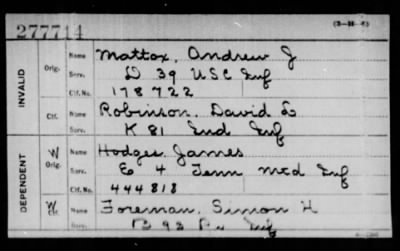 277714
INVALID
Orig. Name Mattox, Andrew J
Serv. D 39 USC Inf
Ctf. No. 178722
Ctf. Name Robinson, David L
Serv. K 81 Ind Inf
DEPENDENT
W Orig. Name Hodges, James
Serv. E 4 Tenn Mtd Inf
Ctf. No. 444818
W Ctf. Name Foreman, Simon H
Serv. B 93 Pa Inf